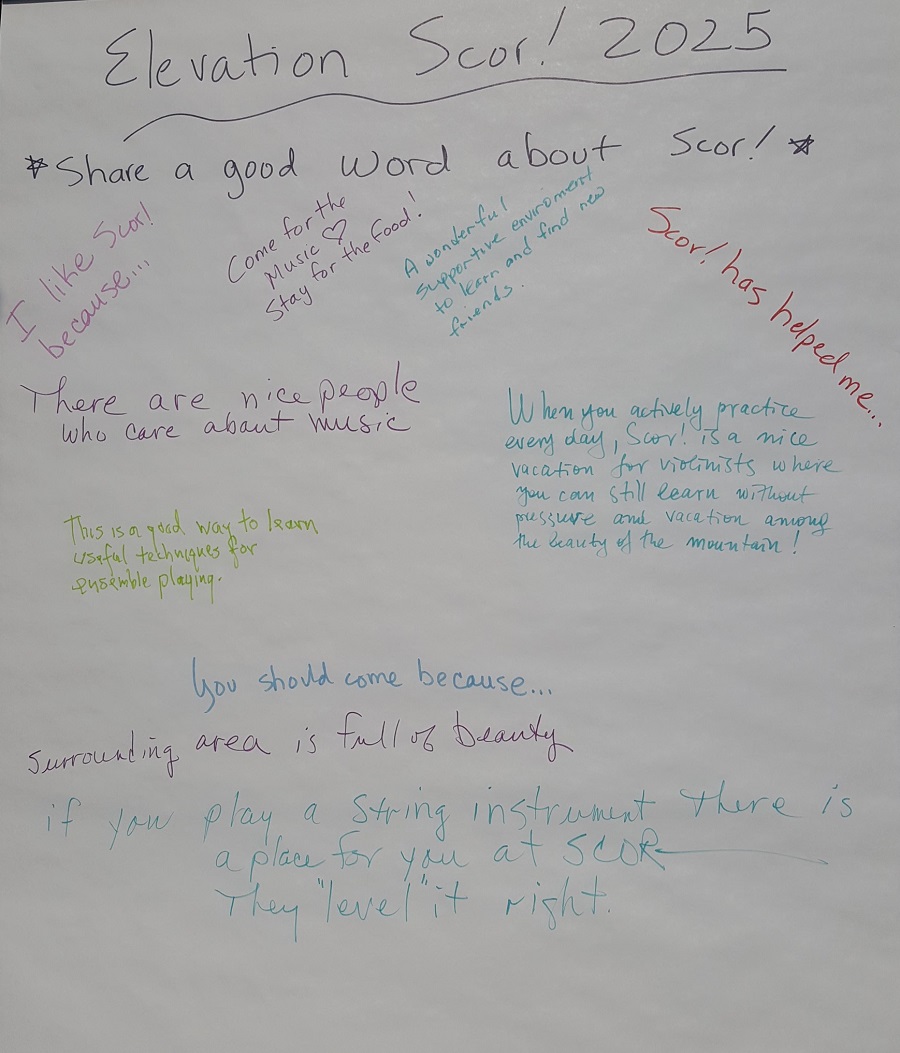 Elevation Scor! 2025
*Share a good word about Scor!*
I like Scor!
because...
Come for the
Music ♡
Stay for the Food!
A wonderful
supportive enviroment
to learn and find new
friends.
Scor! has helped me...
There are nice people
who care about music
When you actively practice
every day, Scor! is a nice
vacation for violinists where
you can still learn without
pressure and vacation among
the beauty of the mountain!
This is a good way to learn
useful techniques for
ensemble playing.
You should come because...
Surrounding area is full of beauty
if you play a string instrument there is
a place for you at SCOR
They "level" it right.